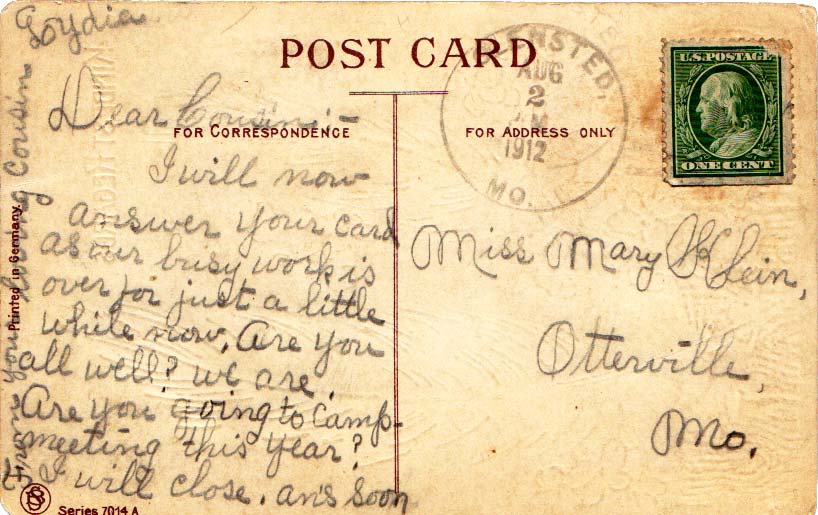 POST CARD
FOR CORRESPONDENCE
FOR ADDRESS ONLY
Dear Cousin:-
I will now
answer your card
as our busy work is
over for just a little
while now, Are you
all well? we are.
Are you going to Camp-
meeting this year?
I will close. ans soon
From your loving Cousin
Lydia
AUG
2
M
1912
MO.
U.S. POSTAGE
ONE CENT
Miss Mary Klein,
Otterville,
Mo.
Printed in Germany.
Series 7014 A